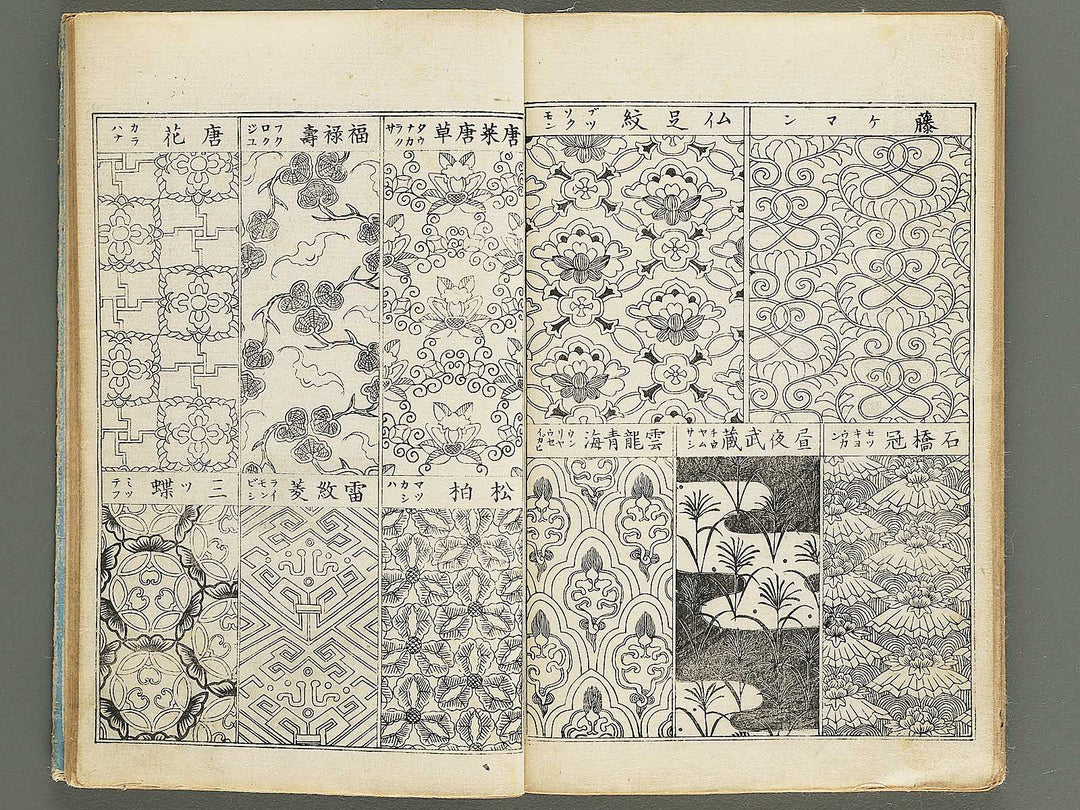 藤ケマン
仏足紋 ブツソクモン
石橋冠 セツキヨウカン
昼夜武蔵 チウヤムサシ
雲龍青海 ウンリヤウセイカヒ
唐菜唐草 タウナカラクサ
福禄壽 フクロクジユ
唐花 カラハナ
松柏 マツカシハ
雷紋菱 ライモンビシ
三ッ蝶 ミツテフ